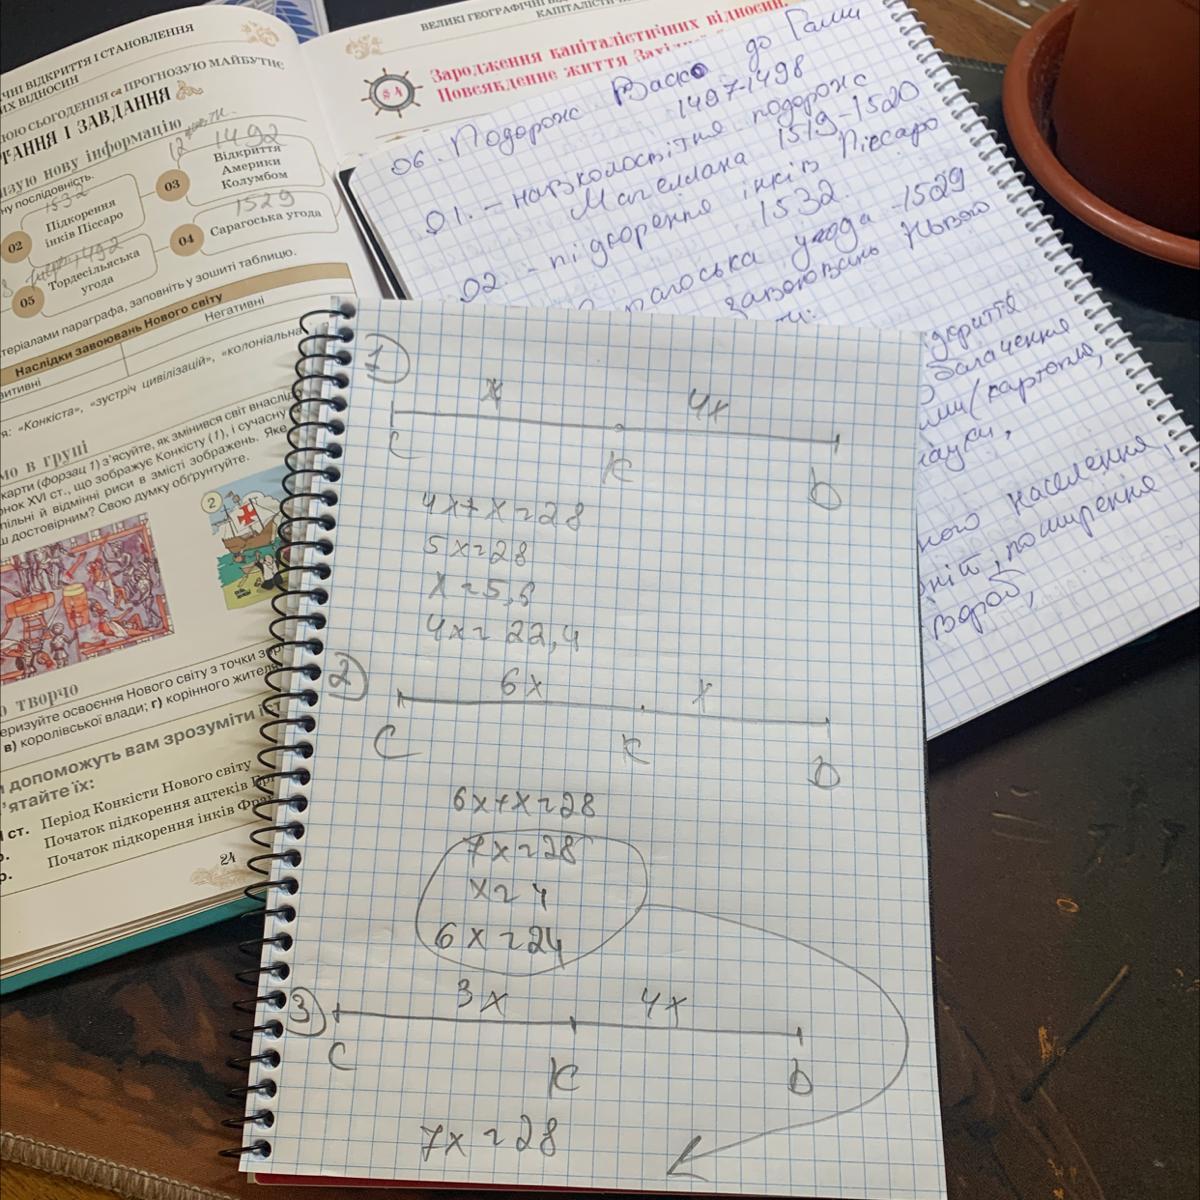 ЧНІ ВІДКРИТТЯ І СТАНОВЛЕННЯ
ИХ ВІДНОСИН
НОЮ СЬОГОДЕННЯ са ПРОГНОЗУЮ МАЙБУТНЄ
ТАННЯ І ЗАВДАННЯ
изую нову інформацію
ну послідовність.
1532
02
Підкорення
інків Піссаро
03
1492
Відкриття
Америки
Колумбом
04
1529
Сарагоська угода
05
Тордесільяська
угода
теріалами параграфа, заповніть у зошиті таблицю.
Наслідки завоювань Нового світу
зитивні
Негативні
я: «Конкіста», «зустріч цивілізацій», «колоніальна
мо в групі
карти (форзац 1) з'ясуйте, як змінився світ внаслід
нок XVI ст., що зображує Конкісту (1), і сучасну
пільні й відмінні риси в змісті зображень. Яке
ш достовірним? Свою думку обґрунтуйте.
2
о творчо
еризуйте освоєння Нового світу з точки зор
в) королівської влади; г) корінного жителя
и допоможуть вам зрозуміти іст
'ятайте їх:
І ст. Період Конкісти Нового світу
р. Початок підкорення ацтеків
р. Початок підкорення інків Фран
24
ВЕЛИКІ ГЕОГРАФІЧНІ ВІД
КАПІТАЛІСТИ
§ 4
Зародження капіталістичних відносин.
Повсякденне життя Західної
06. Подорож Васко до Гами
1497-1498
01. – навколосвітня подорож
Магеллана 1519-1520
02. – підкорення інків Піссаро
1532.
рагоська угода -1529
завоювань Нового
ти:
дкриття
багачення
ми/картопля,
науки,
ного населення,
поширення
вороб,
1
x
4x
C
K
D
4x+x=28
5x=28
x=5,6
4x=22,4
2
6x
x
C
K
D
6x+x=28
7x=28
x=4
6x=24
3
3x
4x
C
K
D
7x=28